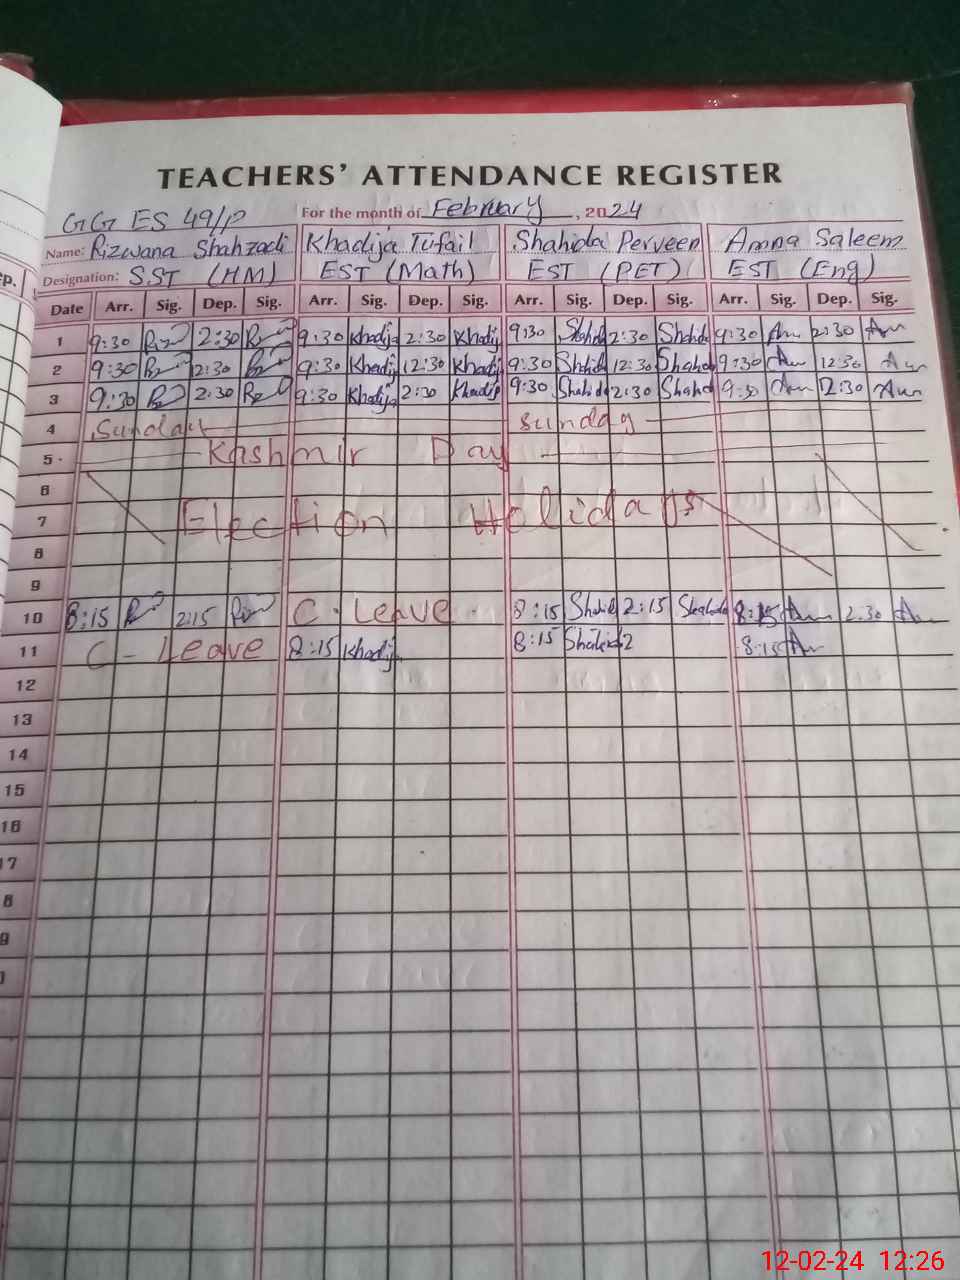 TEACHERS' ATTENDANCE REGISTER
GG ES 49/P For the month of February, 2024
Name: Rizwana Shahzadi Khadija Tufail Shahida Perveen Amna Saleem
Designation: S.ST (HM) EST (Math) EST (PET) EST (Eng)
ep.
Date Arr. Sig. Dep. Sig. Arr. Sig. Dep. Sig. Arr. Sig. Dep. Sig. Arr. Sig. Dep. Sig.
1 9:30 2:30 9:30 Khadija 2:30 Khadij 9:30 Shahid 2:30 Shahid 9:30 Am 2:30 Am
2 9:30 12:30 9:30 Khadij 12:30 Khadij 9:30 Shahid 12:30 Shahid 9:30 Am 12:30 Am
3 9:30 2:30 9:30 Khadija 2:30 Khadij 9:30 Shahid 2:30 Shahid 9:30 Am 2:30 Am
4 Sunday Sunday
5 Kashmir Day
6
7 Election Holidays
8
9
10 8:15 2:15 C. Leave 8:15 Shahid 2:15 Shahida 8:15 Am 2.30 Am
11 C - Leave 8:15 Khadij 8:15 Shahid 8:15 Am
12
13
14
15
16
17
8
9
12-02-24 12:26